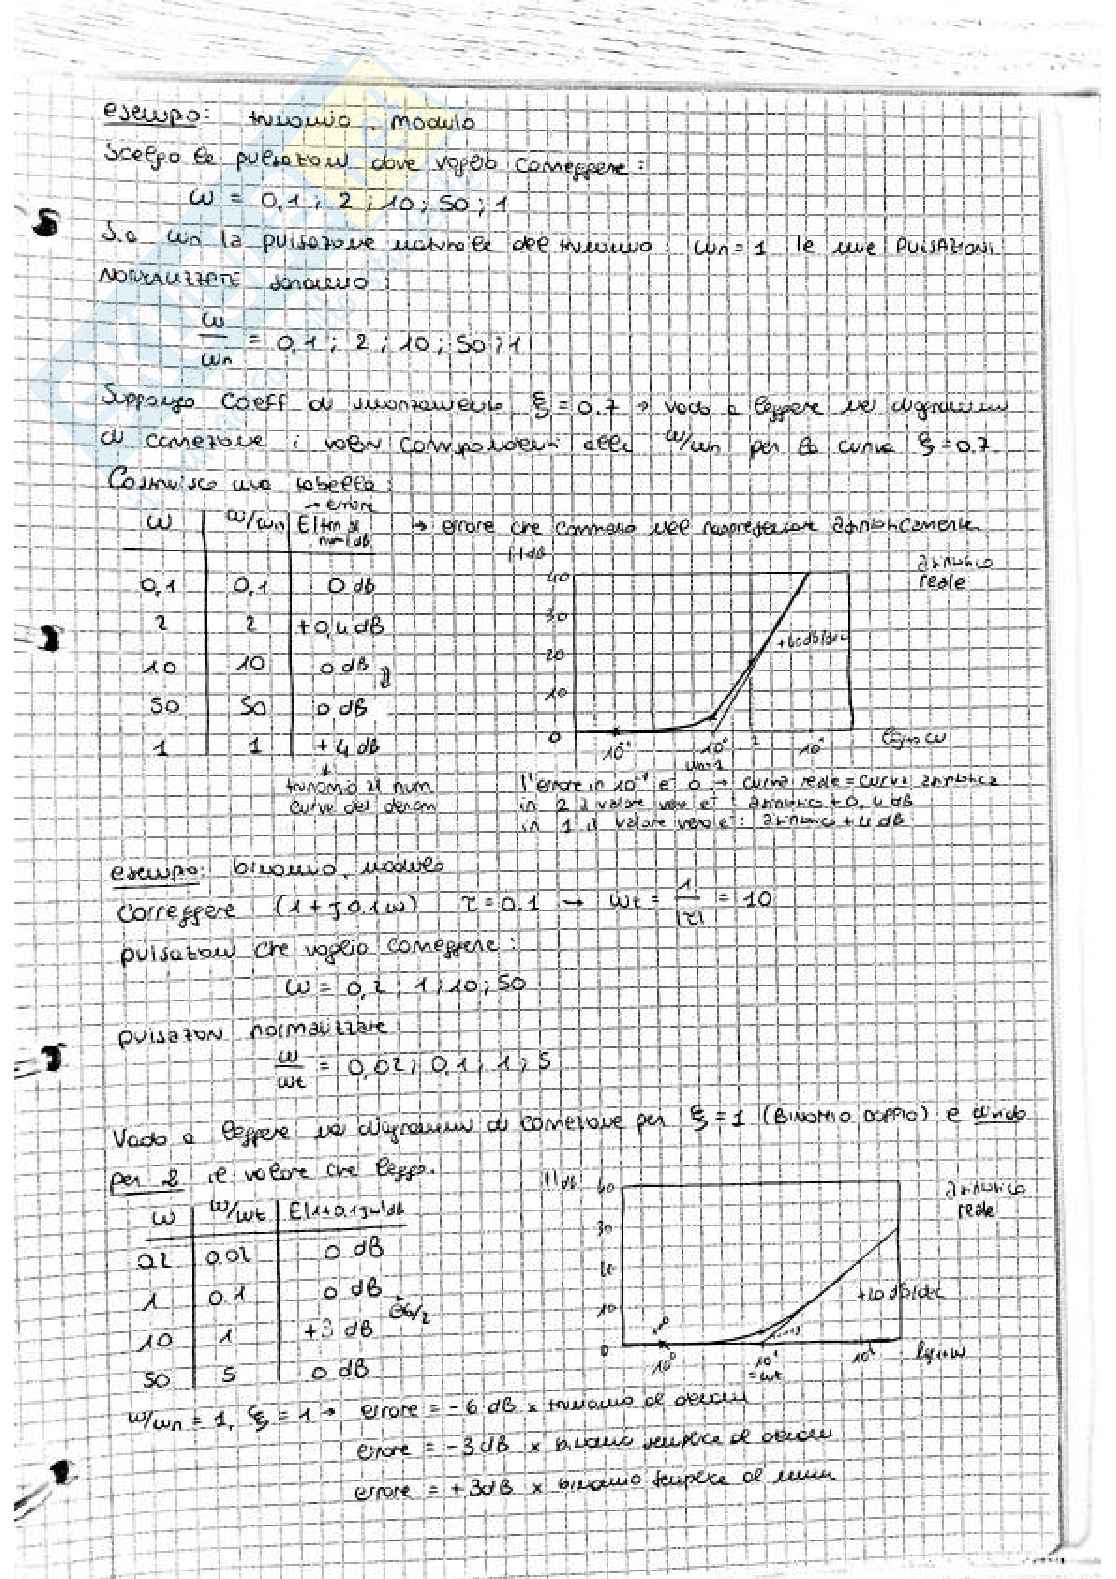 esempio: trinomio, modulo
Scelgo le pulsazioni dove voglio correggere:
ω = 0,1 ; 2 ; 10 ; 50 ; 1
Sia ωn la pulsazione naturale del trinomio ωn = 1 le mie PULSAZIONI
NORMALIZZATE saranno:
ω/ωn = 0,1 ; 2 ; 10 ; 50 ; 1
Suppongo coeff di smorzamento ξ = 0.7 → vado a leggere nei diagrammi
di correzione i valori corrispondenti alle ω/ωn per la curva ξ = 0.7
Costruisco una tabella:
→ errore
ω | ω/ωn | E|trin al num|dB → errore che commetto nel rappresentare asintoticamente
0,1 | 0,1 | 0 dB
2 | 2 | +0,4 dB
10 | 10 | 0 dB
50 | 50 | 0 dB
1 | 1 | +4 dB
trinomio al num
curve del denom
| |dB
40
30
20
10
0
asintotico
reale
+40 dB/dec
10⁰
ωn=1
2
log₁₀ω
l'errore in 10⁻¹ è 0 → curva reale = curva asintotica
in 2 il valore vero è: asintotico + 0,4 dB
in 1 il valore vero è: asintotico + 4 dB
esempio: binomio, modulo
correggere (1 + j0.1ω) τ = 0.1 → ωt = 1/|τ| = 10
pulsazioni che voglio correggere:
ω = 0,2 ; 1 ; 10 ; 50
pulsazioni normalizzate
ω/ωt = 0,02 ; 0,1 ; 1 ; 5
Vado a leggere nei diagrammi di correzione per ξ = 1 (BINOMIO DOPPIO) e divido
per 2 il valore che leggo.
ω | ω/ωt | E|1+0.1jω|dB
0,2 | 0,02 | 0 dB
1 | 0.1 | 0 dB
10 | 1 | +3 dB 6/2
50 | 5 | 0 dB
| |dB
40
30
20
10
0
asintotico
reale
+20 dB/dec
10⁰
10¹
= ωt
10²
log₁₀ω
ω/ωn = 1, ξ = 1 → errore = -6 dB x trinomio al denom
errore = -3 dB x binomio semplice al denom
errore = +3dB x binomio semplice al num